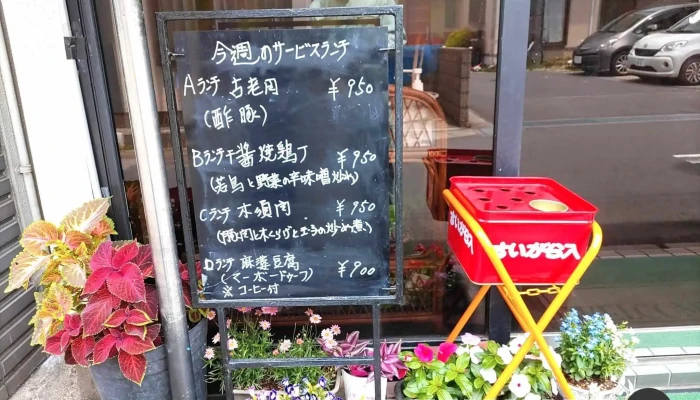 今週のサービスランチ
Aランチ 古老肉 ¥950
(酢豚)
Bランチ 干醤焼鶏丁 ¥950
(若鳥と野菜の辛味噌炒め)
Cランチ 木須肉 ¥950
(豚肉と木くらげと玉子の炒め煮)
Dランチ 麻婆豆腐 ¥900
(マーボードーフ)
※コーヒー付
すいがら入
すいがら入